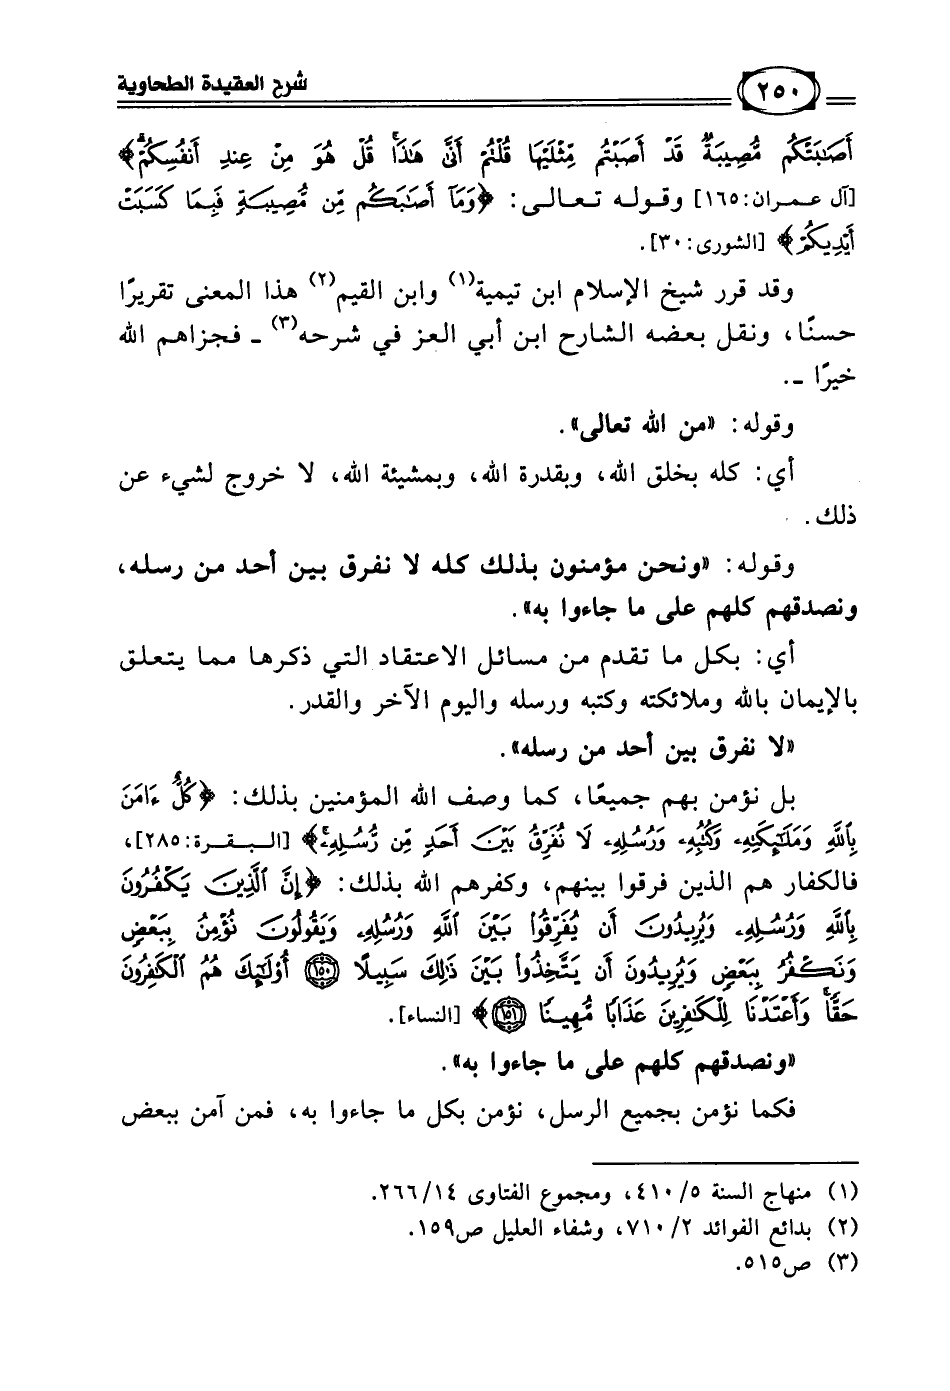 شرح العقيدة الطحاوية
٢٥٠
أَصَٰبَتْكُم مُّصِيبَةٌ قَدْ أَصَبْتُم مِّثْلَيْهَا قُلْتُمْ أَنَّىٰ هَٰذَا قُلْ هُوَ مِنْ عِندِ أَنفُسِكُمْ﴾
[آل عمران:١٦٥] وقوله تعالى: ﴿وَمَآ أَصَٰبَكُم مِّن مُّصِيبَةٍ فَبِمَا كَسَبَتْ
أَيْدِيكُمْ﴾ [الشورى:٣٠].
وقد قرر شيخ الإسلام ابن تيمية(١) وابن القيم(٢) هذا المعنى تقريرًا
حسنًا، ونقل بعضه الشارح ابن أبي العز في شرحه(٣) ـ فجزاهم الله
خيرًا ـ.
وقوله: «من الله تعالى».
أي: كله بخلق الله، وبقدرة الله، وبمشيئة الله، لا خروج لشيء عن
ذلك.
وقوله: «ونحن مؤمنون بذلك كله لا نفرق بين أحد من رسله،
ونصدقهم كلهم على ما جاءوا به».
أي: بكل ما تقدم من مسائل الاعتقاد التي ذكرها مما يتعلق
بالإيمان بالله وملائكته وكتبه ورسله واليوم الآخر والقدر.
«لا نفرق بين أحد من رسله».
بل نؤمن بهم جميعًا، كما وصف الله المؤمنين بذلك: ﴿كُلٌّ ءَامَنَ
بِٱللَّهِ وَمَلَٰٓئِكَتِهِۦ وَكُتُبِهِۦ وَرُسُلِهِۦ لَا نُفَرِّقُ بَيْنَ أَحَدٍ مِّن رُّسُلِهِۦ﴾ [البقرة:٢٨٥]،
فالكفار هم الذين فرقوا بينهم، وكفرهم الله بذلك: ﴿إِنَّ ٱلَّذِينَ يَكْفُرُونَ
بِٱللَّهِ وَرُسُلِهِۦ وَيُرِيدُونَ أَن يُفَرِّقُوا۟ بَيْنَ ٱللَّهِ وَرُسُلِهِۦ وَيَقُولُونَ نُؤْمِنُ بِبَعْضٍ
وَنَكْفُرُ بِبَعْضٍ وَيُرِيدُونَ أَن يَتَّخِذُوا۟ بَيْنَ ذَٰلِكَ سَبِيلًا ١٥٠ أُو۟لَٰٓئِكَ هُمُ ٱلْكَٰفِرُونَ
حَقًّا وَأَعْتَدْنَا لِلْكَٰفِرِينَ عَذَابًا مُّهِينًا ١٥١﴾ [النساء].
«ونصدقهم كلهم على ما جاءوا به».
فكما نؤمن بجميع الرسل، نؤمن بكل ما جاءوا به، فمن آمن ببعض
(١) منهاج السنة ٤١٠/٥، ومجموع الفتاوى ٢٦٦/١٤.
(٢) بدائع الفوائد ٧١٠/٢، وشفاء العليل ص١٥٩.
(٣) ص٥١٥.